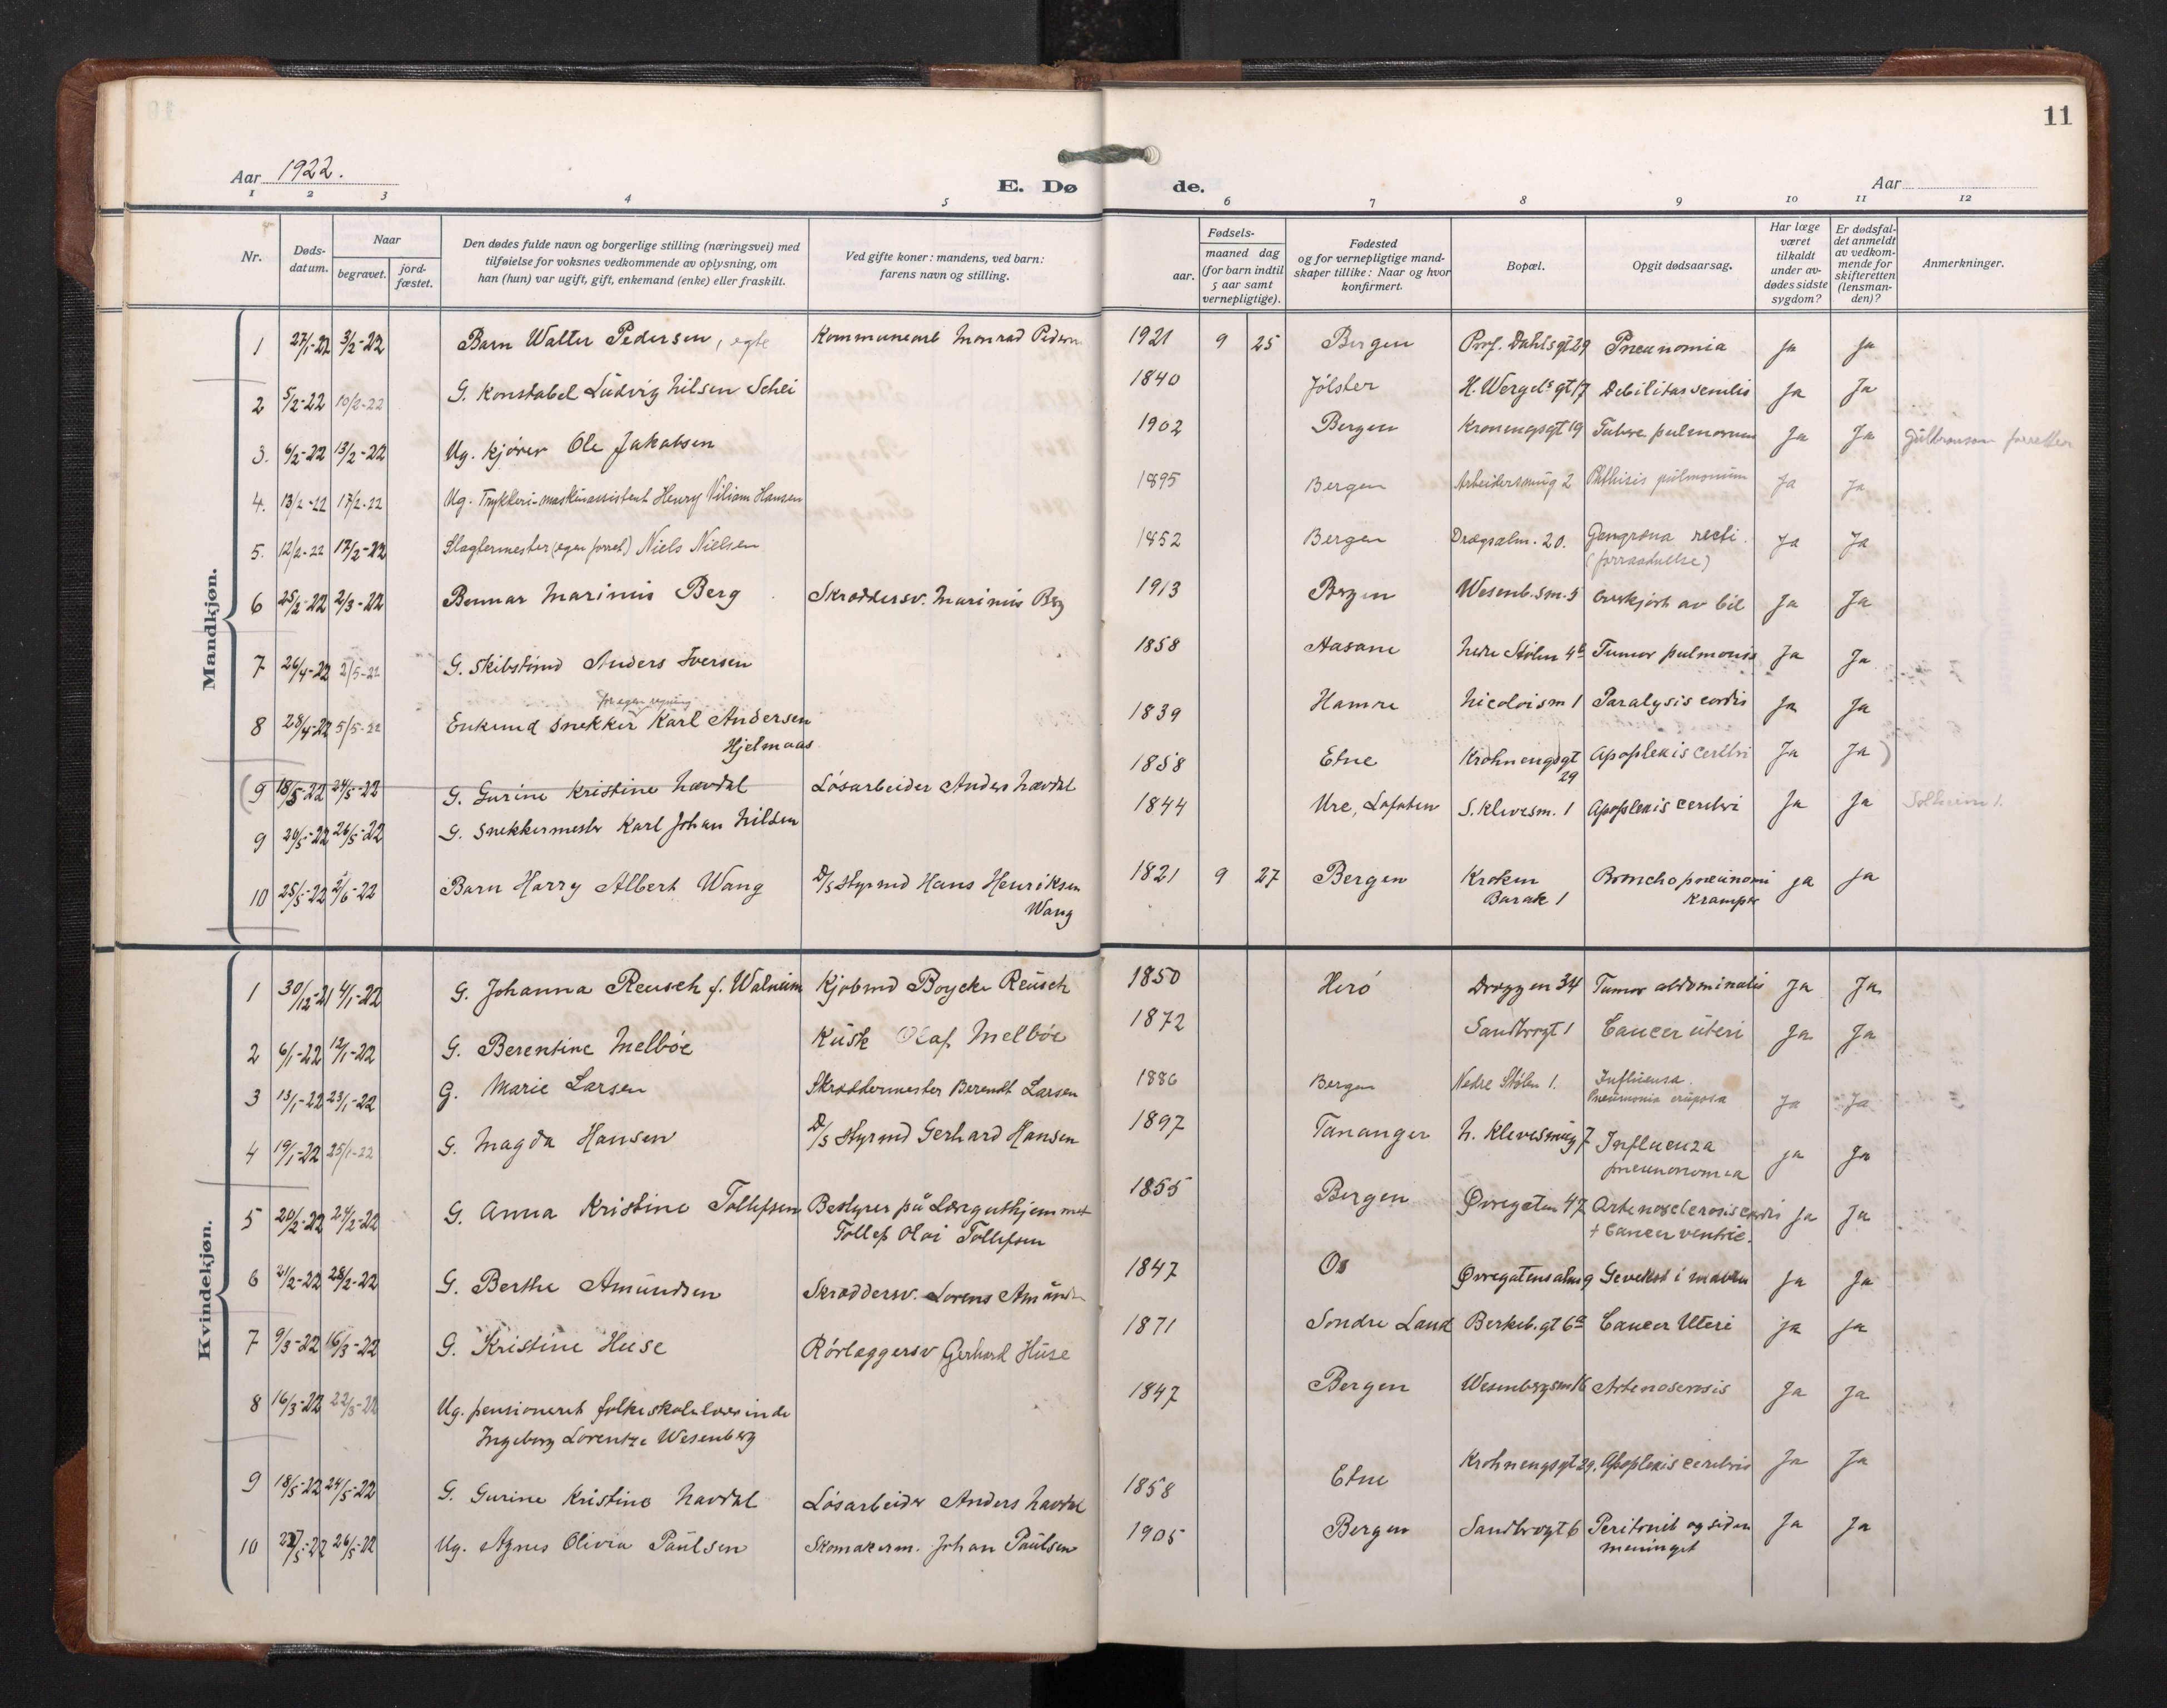 11
Aar 1922.
E. Dø de.
Aar
1 2 3 4 5 6 7 8 9 10 11 12
Nr.
Døds-
datum.
Naar
begravet.
jord-
fæstet.
Den dødes fulde navn og borgerlige stilling (næringsvei) med
tilføielse for voksnes vedkommende av oplysning, om
han (hun) var ugift, gift, enkemand (enke) eller fraskilt.
Ved gifte koner: mandens, ved barn:
farens navn og stilling.
Fødsels-
aar.
maaned dag
(for barn indtil
5 aar samt
vernepligtige).
Fødested
og for vernepligtige mand-
skaper tillike: Naar og hvor
konfirmert.
Bopæl.
Opgit dødsaarsag.
Har læge
været
tilkaldt
under av-
dødes sidste
sygdom?
Er dødsfal-
det anmeldt
av vedkom-
mende for
skifteretten
(lensman-
den)?
Anmerkninger.
Mandkjøn.
1 27/1-22 3/2-22 Barn Walter Pedersen, egte Kommunearb Monrad Pedersen 1921 9 25 Bergen Prof. Dahlsgt 29 Pneunomia Ja Ja
2 5/2-22 10/2-22 G. Konstabel Ludvig Nilsen Schei 1840 Jølster H. Wergels gt 17 Debilitas senilis Ja Ja
3. 6/2-22 13/2-22 Ug. Kjører Ole Jakobsen 1902 Bergen Kronengsgt 19 Tuberc pulmonum Ja Ja Gulbranson forretter
4. 13/2-22 17/2-22 Ug. Trykkeri-maskinassistent Henry Viliam Hansen 1895 Bergen Arbeidersmug 2 Phthisis pulmonum Ja Ja
5. 12/2-22 17/2-22 Slagtermester (egen forret) Niels Nielsen 1852 Bergen Drægsalm. 20. Gangræna recti.
(forraadnelse) Ja Ja
6 25/2-22 2/3-22 Bennar Marinius Berg Skræddersv. Marinius Berg 1913 Bergen Wesenb.sm. 5 Overkjørt av bil Ja Ja
7 26/4-22 2/5-22 G. Skibstømd Anders Iversen 1858 Aasane Nedre Stølen 4b Tumor pulmonis Ja Ja
for egen regning
8 28/4-22 5/5-22 Enkemd Snekker Karl Andersen
Hjelmaas 1839 Hamre Nicolaism 1 Paralysis cordis Ja Ja
(9 18/5-22 24/5-22 G. Gurine Kristine Nævdal Løsarbeider Anders Nævdal 1858 Etne Krohnengsgt
29 Apoplexis cerebri Ja Ja)
9 20/5-22 26/5-22 G. Snekkermester Karl Johan Nilsen 1844 Ure, Lofoten S. Klevesm. 1 Apoplexis cerebri Ja Ja Solheim 1.
10 25/5-22 2/6-22 Barn Harry Albert Wang D/s Styrmd Hans Henriksen
Wang 1821 9 27 Bergen Kroken
Barak 1 Bronchopneunomi
Krampe Ja Ja
Kvindekjøn.
1 30/12-21 4/1-22 G. Johanna Reusch f. Walneim Kjøbmd Boycke Reusch 1850 Herö Dræggen 34 Tumor abdominalis Ja Ja
2 6/1-22 12/1-22 G. Berentine Melbøe Kusk Olaf Melbøe 1872 Sandbrogt 1 Cancer uteri Ja Ja
3 13/1-22 23/1-22 G. Marie Larsen Skræddermester Berendt Larsen 1886 Bergen Nedre Stølen 1. Influensa.
Pneumonia cruposa Ja Ja
4 19/1-22 25/1-22 G. Magda Hansen D/s Styrmd Gerhard Hansen 1897 Tananger N. Klevesmug 7 Influenza
pneunonomia Ja Ja
5 20/2-22 24/2-22 G. Anna Kristine Tollefsen Bestyrer på Lærguthjemmet
Tollef Olai Tollefsen 1855 Bergen Øvregaten 47 Arteriosclerosis cordis
+ Cancer ventric. Ja Ja
6 21/2-22 28/2-22 G. Berthe Amundsen Skræddersv. Lorens Amunds 1847 Os Øvregatensalm 9 Gevekst i maven Ja Ja
7 9/3-22 16/3-22 G. Kristine Huse Rørlæggersv Gerhard Huse 1871 Sondre Land Berkeb. gt 6a Cancer Uteri Ja Ja
8 16/3-22 22/3-22 Ug. pensioneret folkeskolelærerinde
Ingeborg Lorentze Wesenberg 1847 Bergen Wesenbergsm 16 Arterioserosis Ja Ja
9 18/5-22 24/5-22 G. Gurine Kristine Nævdal Løsarbeider Anders Nævdal 1858 Etne Krohnengsgt 29. Apoplexis cerebris Ja Ja
10 22/5-22 26/5-22 Ug. Agnes Olivia Paulsen Skomakerm. Johan Paulsen 1905 Bergen Sandbrogt 6 Peritonit og siden
meninget Ja Ja